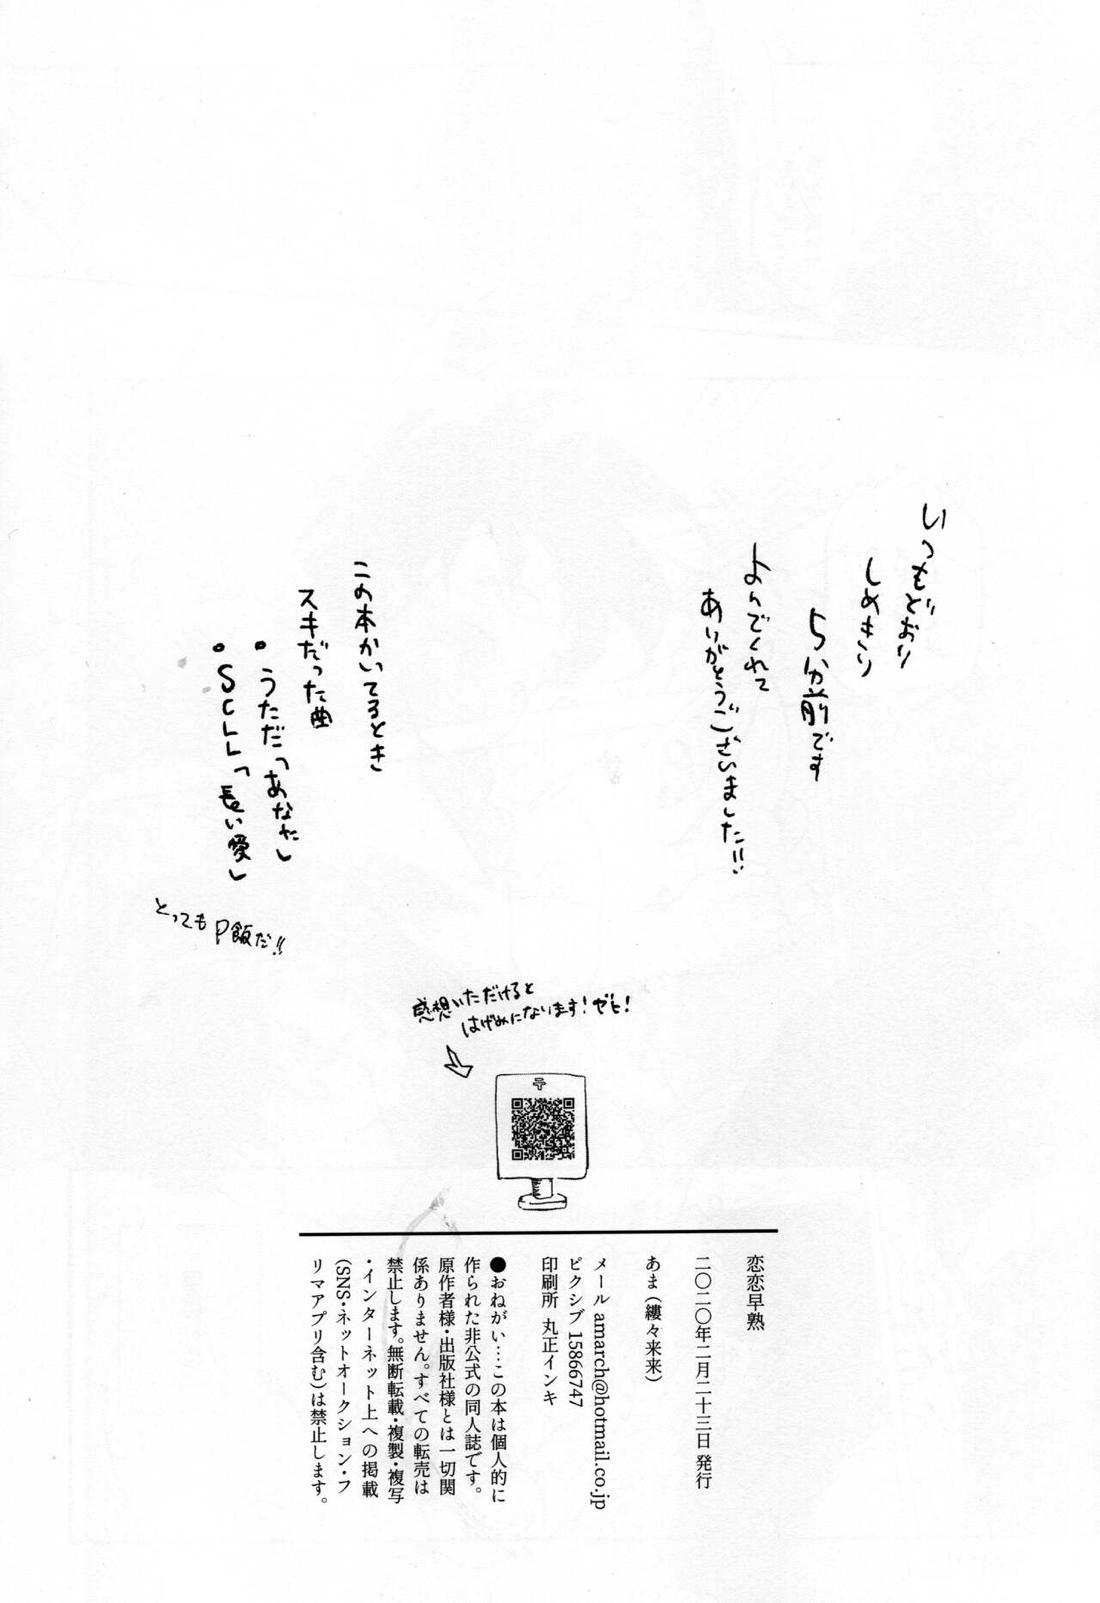 いつもどおり
しめきり
5分前です
よんでくれて
ありがとうございました!!
この本かいてるとき
スキだった曲
• うただ「あなた」
• SCLL「長い愛」
とってもP飯だ!!
感想いただけると
はげみになります!ぜひ!
恋恋早熟
二〇二〇年二月二十三日 発行
あま(縷々来来)
メール amarch@hotmail.co.jp
ピクシブ 15866747
印刷所 丸正インキ
●おねがい…この本は個人的に
作られた非公式の同人誌です。
原作者様・出版社様とは一切関
係ありません。すべての転売は
禁止します。無断転載・複製・複写
・インターネット上への掲載
(SNS・ネットオークション・フ
リマアプリ含む)は禁止します。